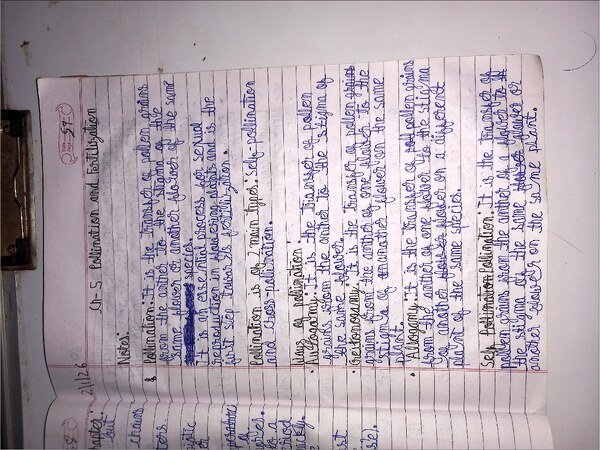 Date
Page 57
2/1/26
Ch-5 Pollination and Fertilization
Notes:
Pollination: It is the transfer of pollen grains
from the anther to the stigma of the
same flower or another flower of the same
species.
It is an essential process for sexual
reproduction in flowering plants and is the
first step towards fertilization.
Pollination is of 2 main types: Self-pollination
and Cross-Pollination.
Ways of pollination:
• Autogamy: It is the transfer of pollen
grains from the anther to the stigma of
the same flower.
• Geitonogamy: It is the transfer of pollen
grains from the anther of one flower to the
stigma of another flower on the same
plant.
• Allogamy: It is the transfer of pollen grains
from the anther of one flower to the stigma
of another flower on a different
plant of the same species.
Self Pollination: It is the transfer of
pollen grains from the anther of a flower to
the stigma of the same flower or
another flower on the same plant.
chapter.
but
chains